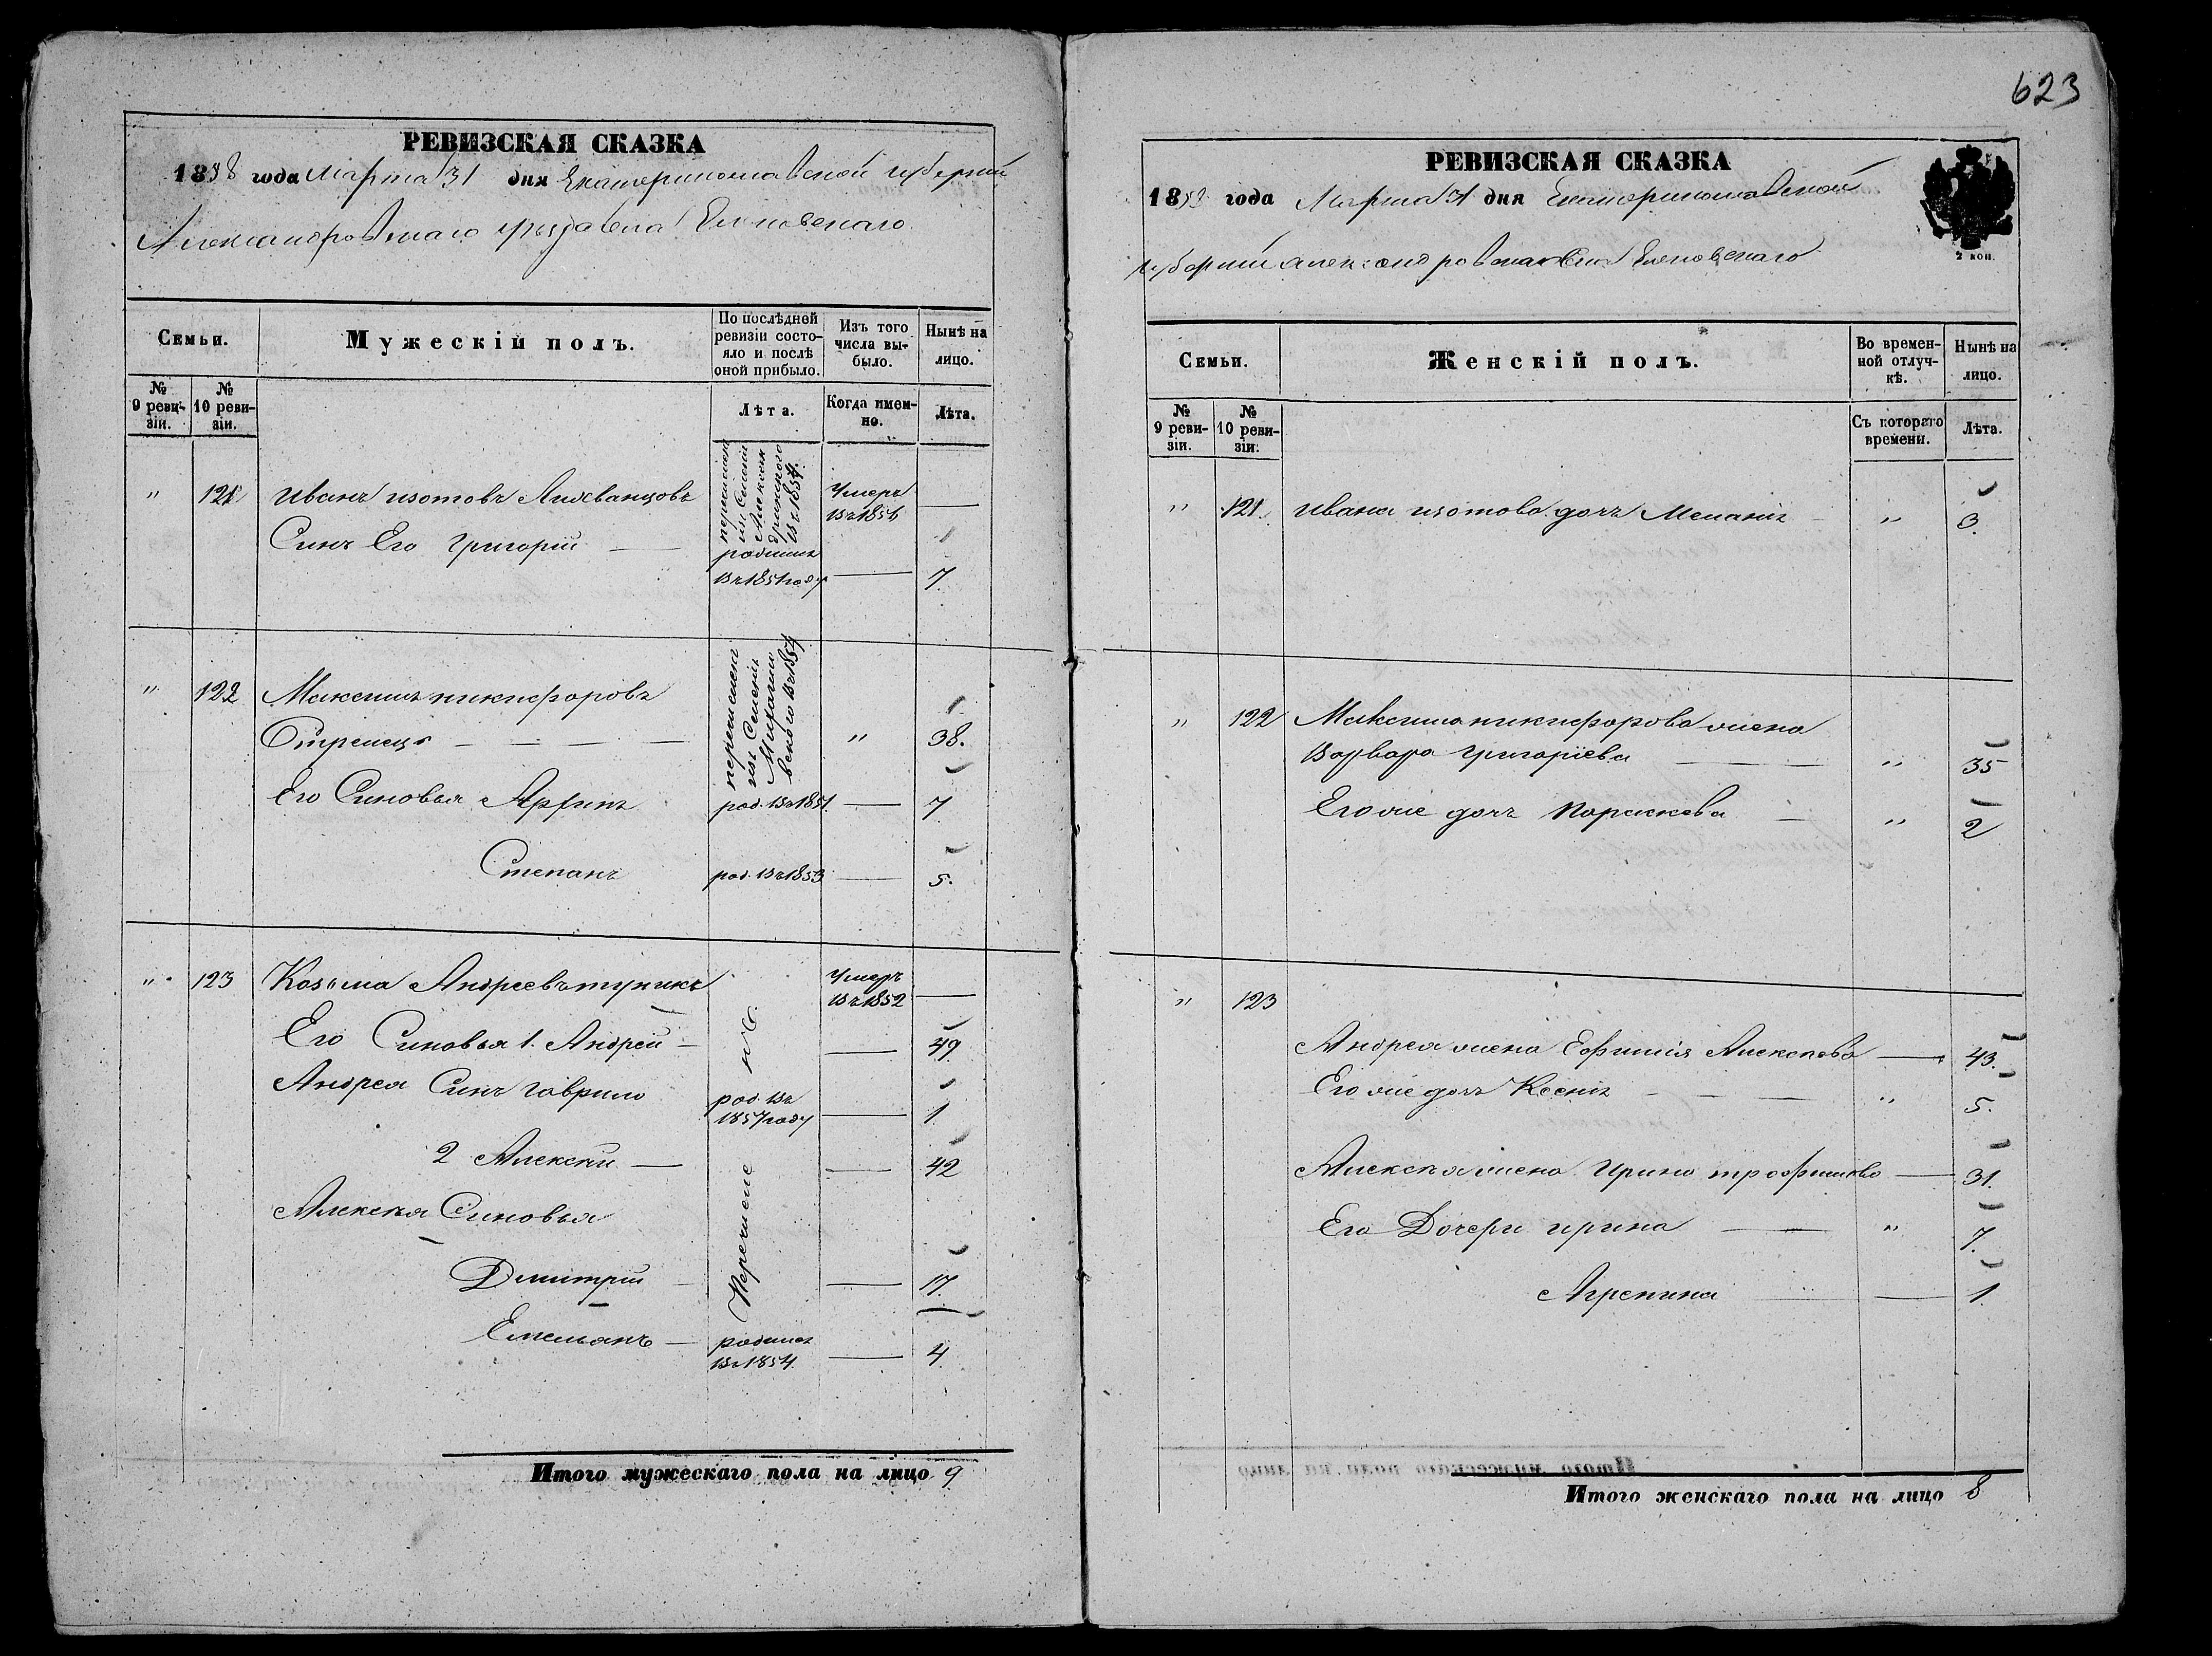 623
РЕВИЗСКАЯ СКАЗКА
1858 года Марта 31 дня Екатеринославской губернии
Александровскаго уезда села Еленовскаго
Семьи.
Мужескій полъ.
По послѣдней ревизіи состояло и послѣ оной прибыло.
Изъ того числа выбыло.
Нынѣ на лицо.
№ 9 ревизіи.
№ 10 ревизіи.
Лѣта.
Когда именно.
Лѣта.
" 121 Иванъ изотовъ
Умеръ въ 185
Синъ Его Григорій — родился въ 1851 году — 7.
" 122 Максимъ никифоровъ
Стрепецъ — — — " 38.
Его Синовья Архипъ род. въ 1851. — 7
Степанъ род. въ 1853 — 5.
" 123 Козьма Андреевъ тупикъ Умеръ въ 1852 —
Его Синовья 1. Андрей — — 49
Андрея Синъ Гаврило род. въ 1857 году — 1.
2 Алексей — — 42
Алексея Синовья
Дмитрій — — 17.
Емельянъ — родился въ 1854. — 4.
Итого мужескаго пола на лицо 9
РЕВИЗСКАЯ СКАЗКА
1858 года Марта 31 дня Екатеринославской
губерніи Села Еленовскаго
2 коп.
Семьи.
Женскій полъ.
Во временной отлучкѣ.
Нынѣ на лицо.
№ 9 ревизіи.
№ 10 ревизіи.
Съ котораго времени.
Лѣта.
" 121. Ивана изотова дочь Меланія — " 3.
" 122 Максима никифорова жена
Варвара Григоріева — — " 35
Его же дочь Параскева — " 2
" 123
Андрея жена Ефимія Алексеева — 43.
Его же дочь Ксенія — — — " 5.
Алексея жена Ирина трофимова — 31.
Его Дочери ирина — — " 7.
Агрепина — — 1.
Итого женскаго пола на лицо 8